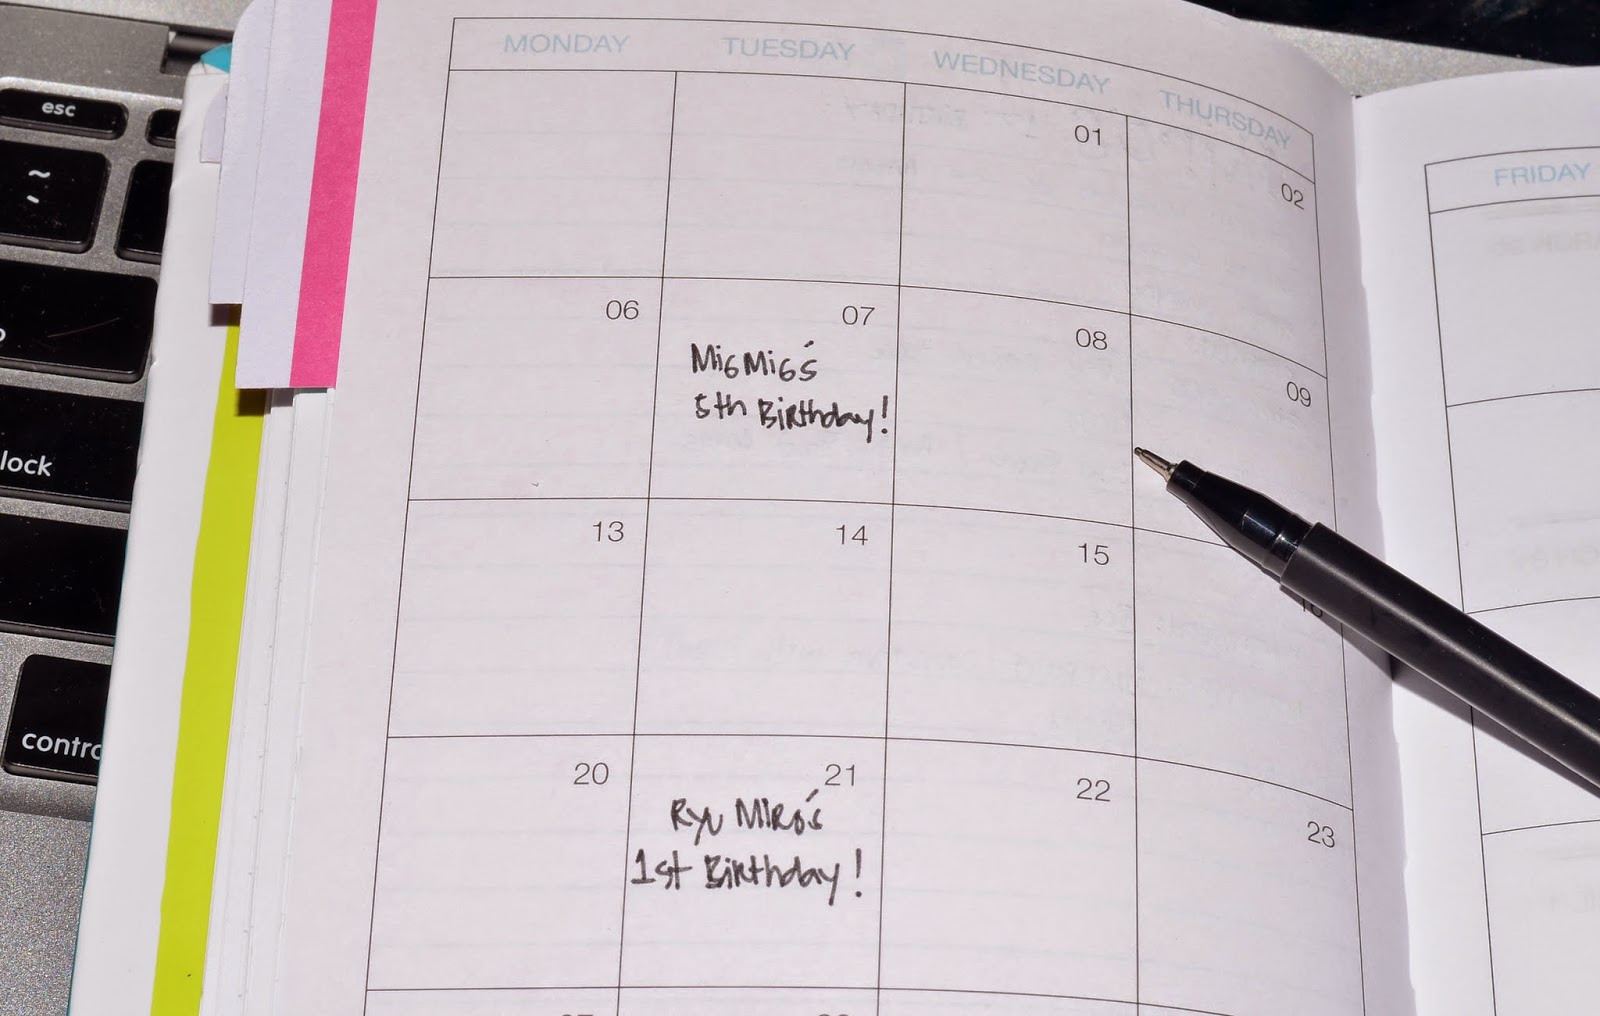 esc
~
lock
contro
MONDAY TUESDAY WEDNESDAY THURSDAY
FRIDAY
01 02
06 07 08 09
MigMig's
5th Birthday!
13 14 15 16
20 21 22 23
Ryu Miro's
1st Birthday!